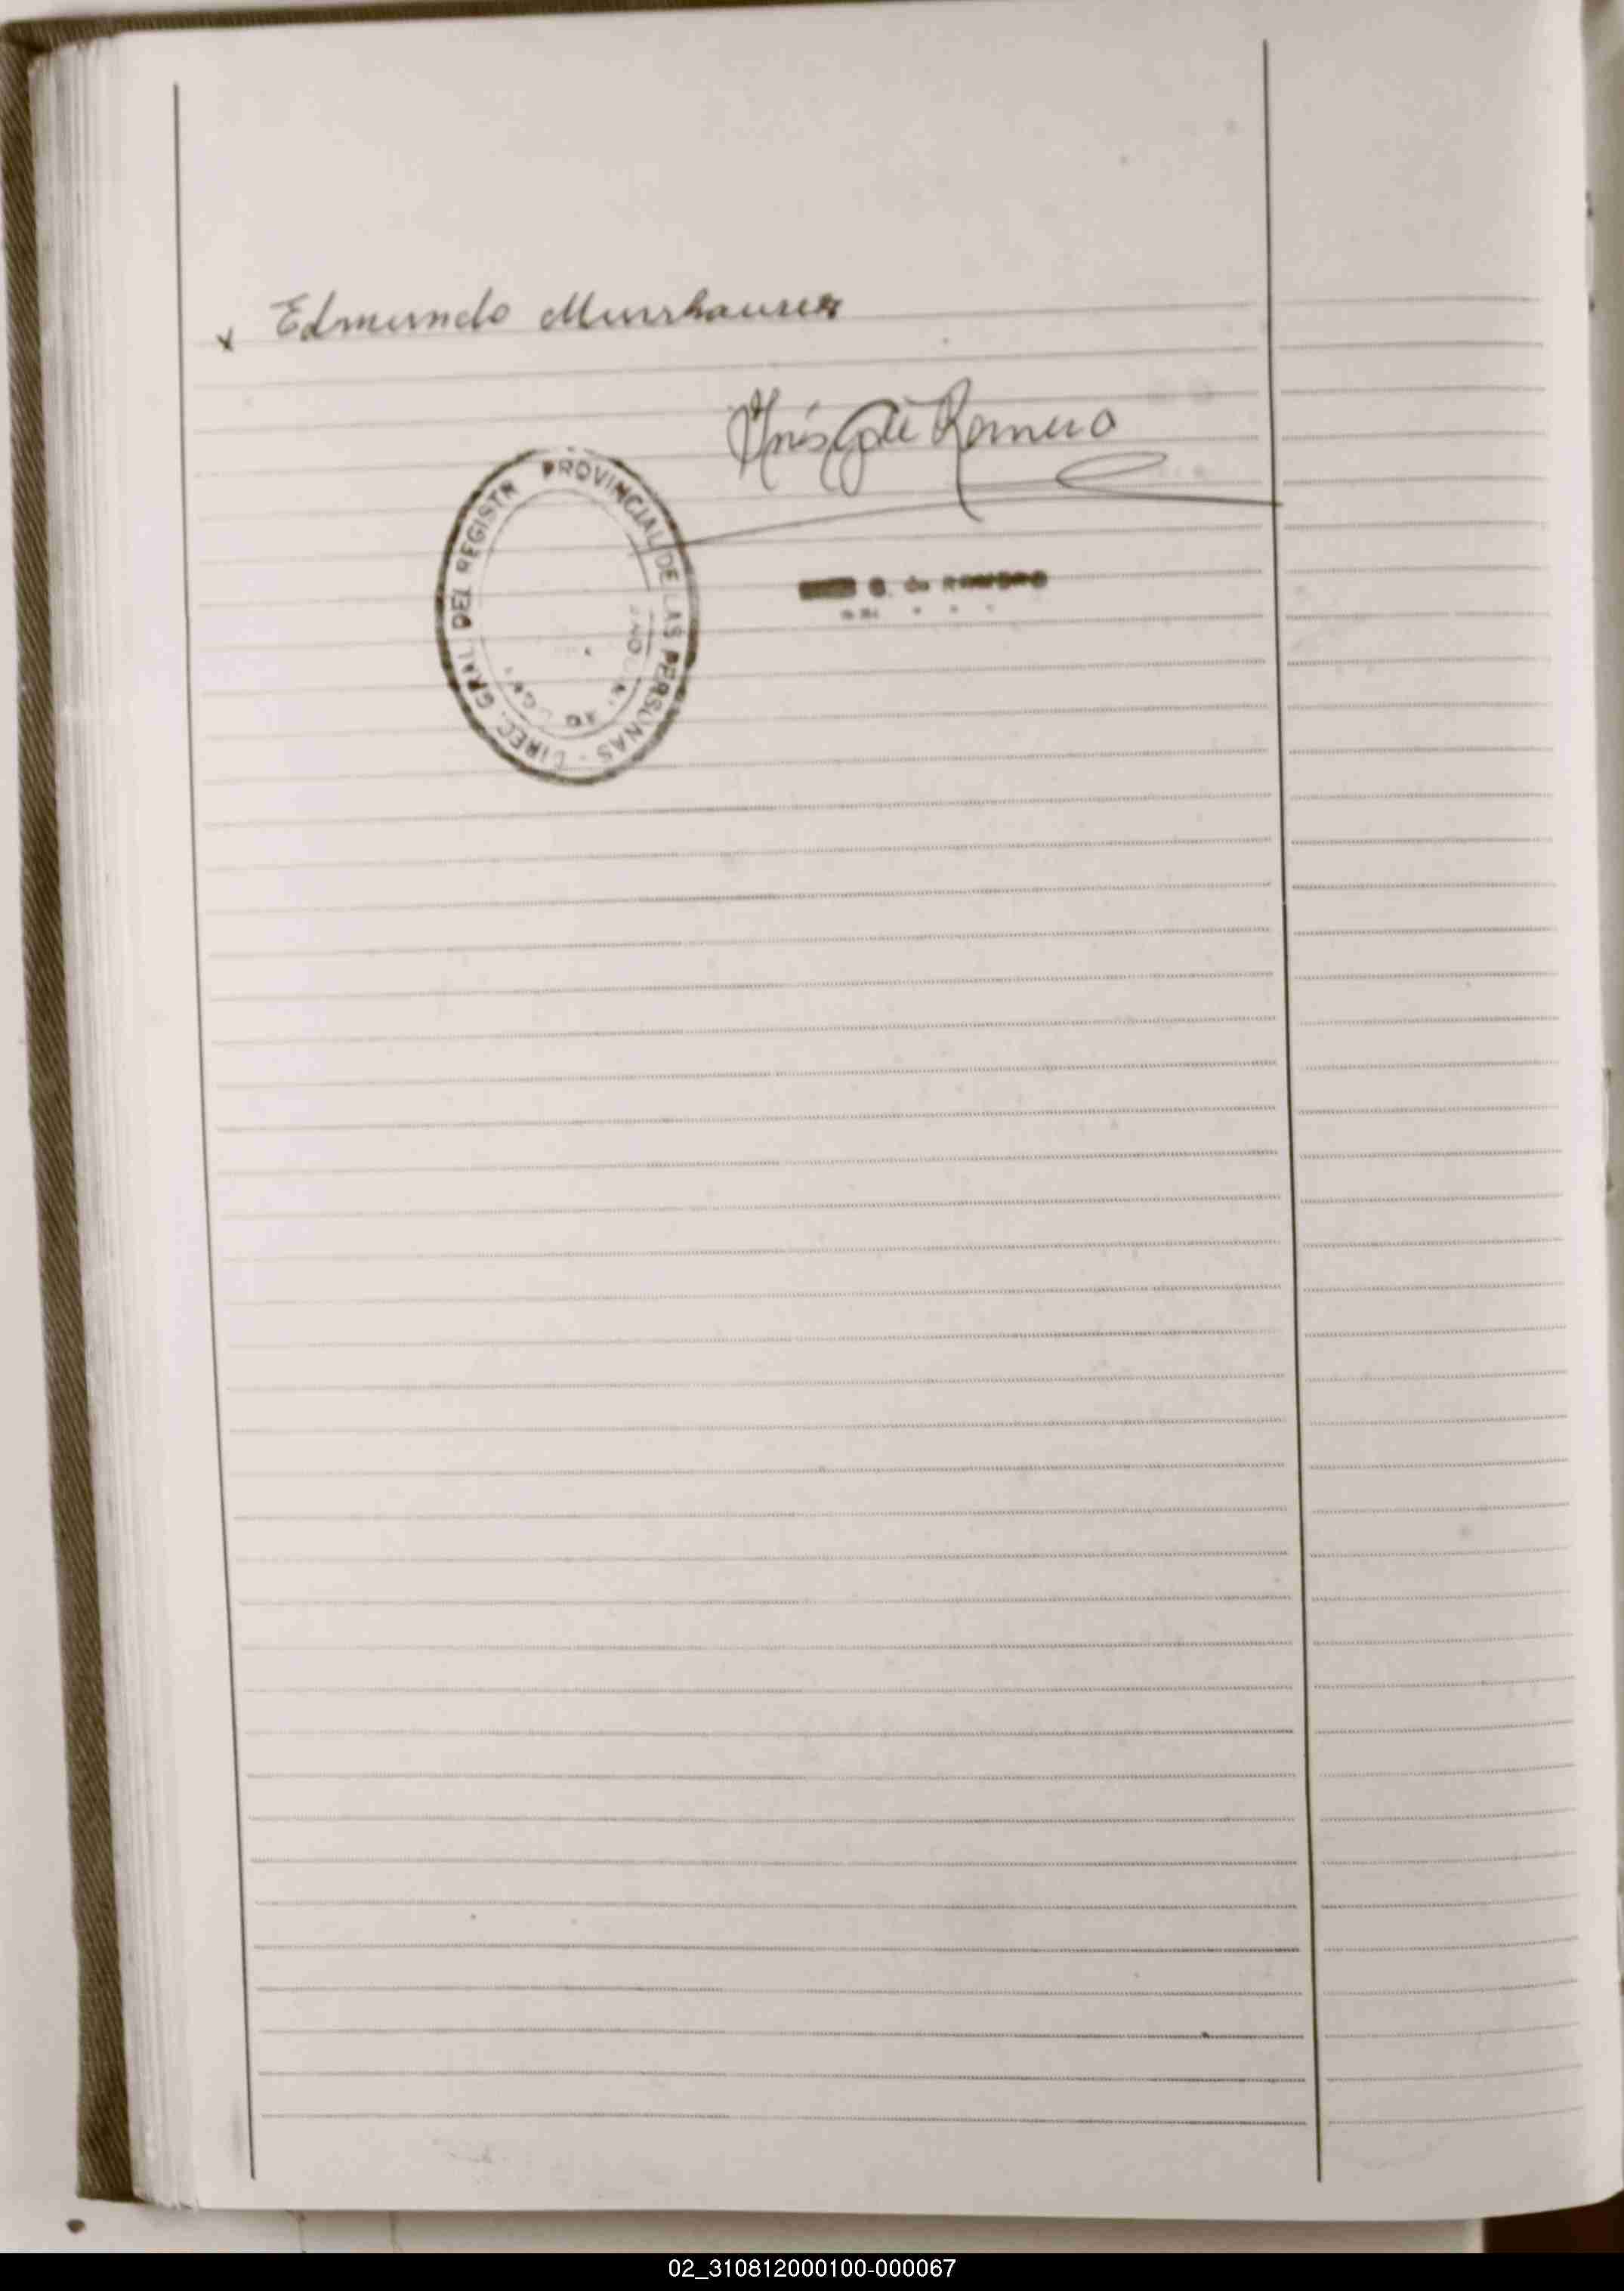 x Edmundo Murrhauser
Inés G de Romero
DIREC. GRAL DEL REGISTR PROVINCIAL DE LAS PERSONAS -
G. de ROMERO
02_310812000100-000067